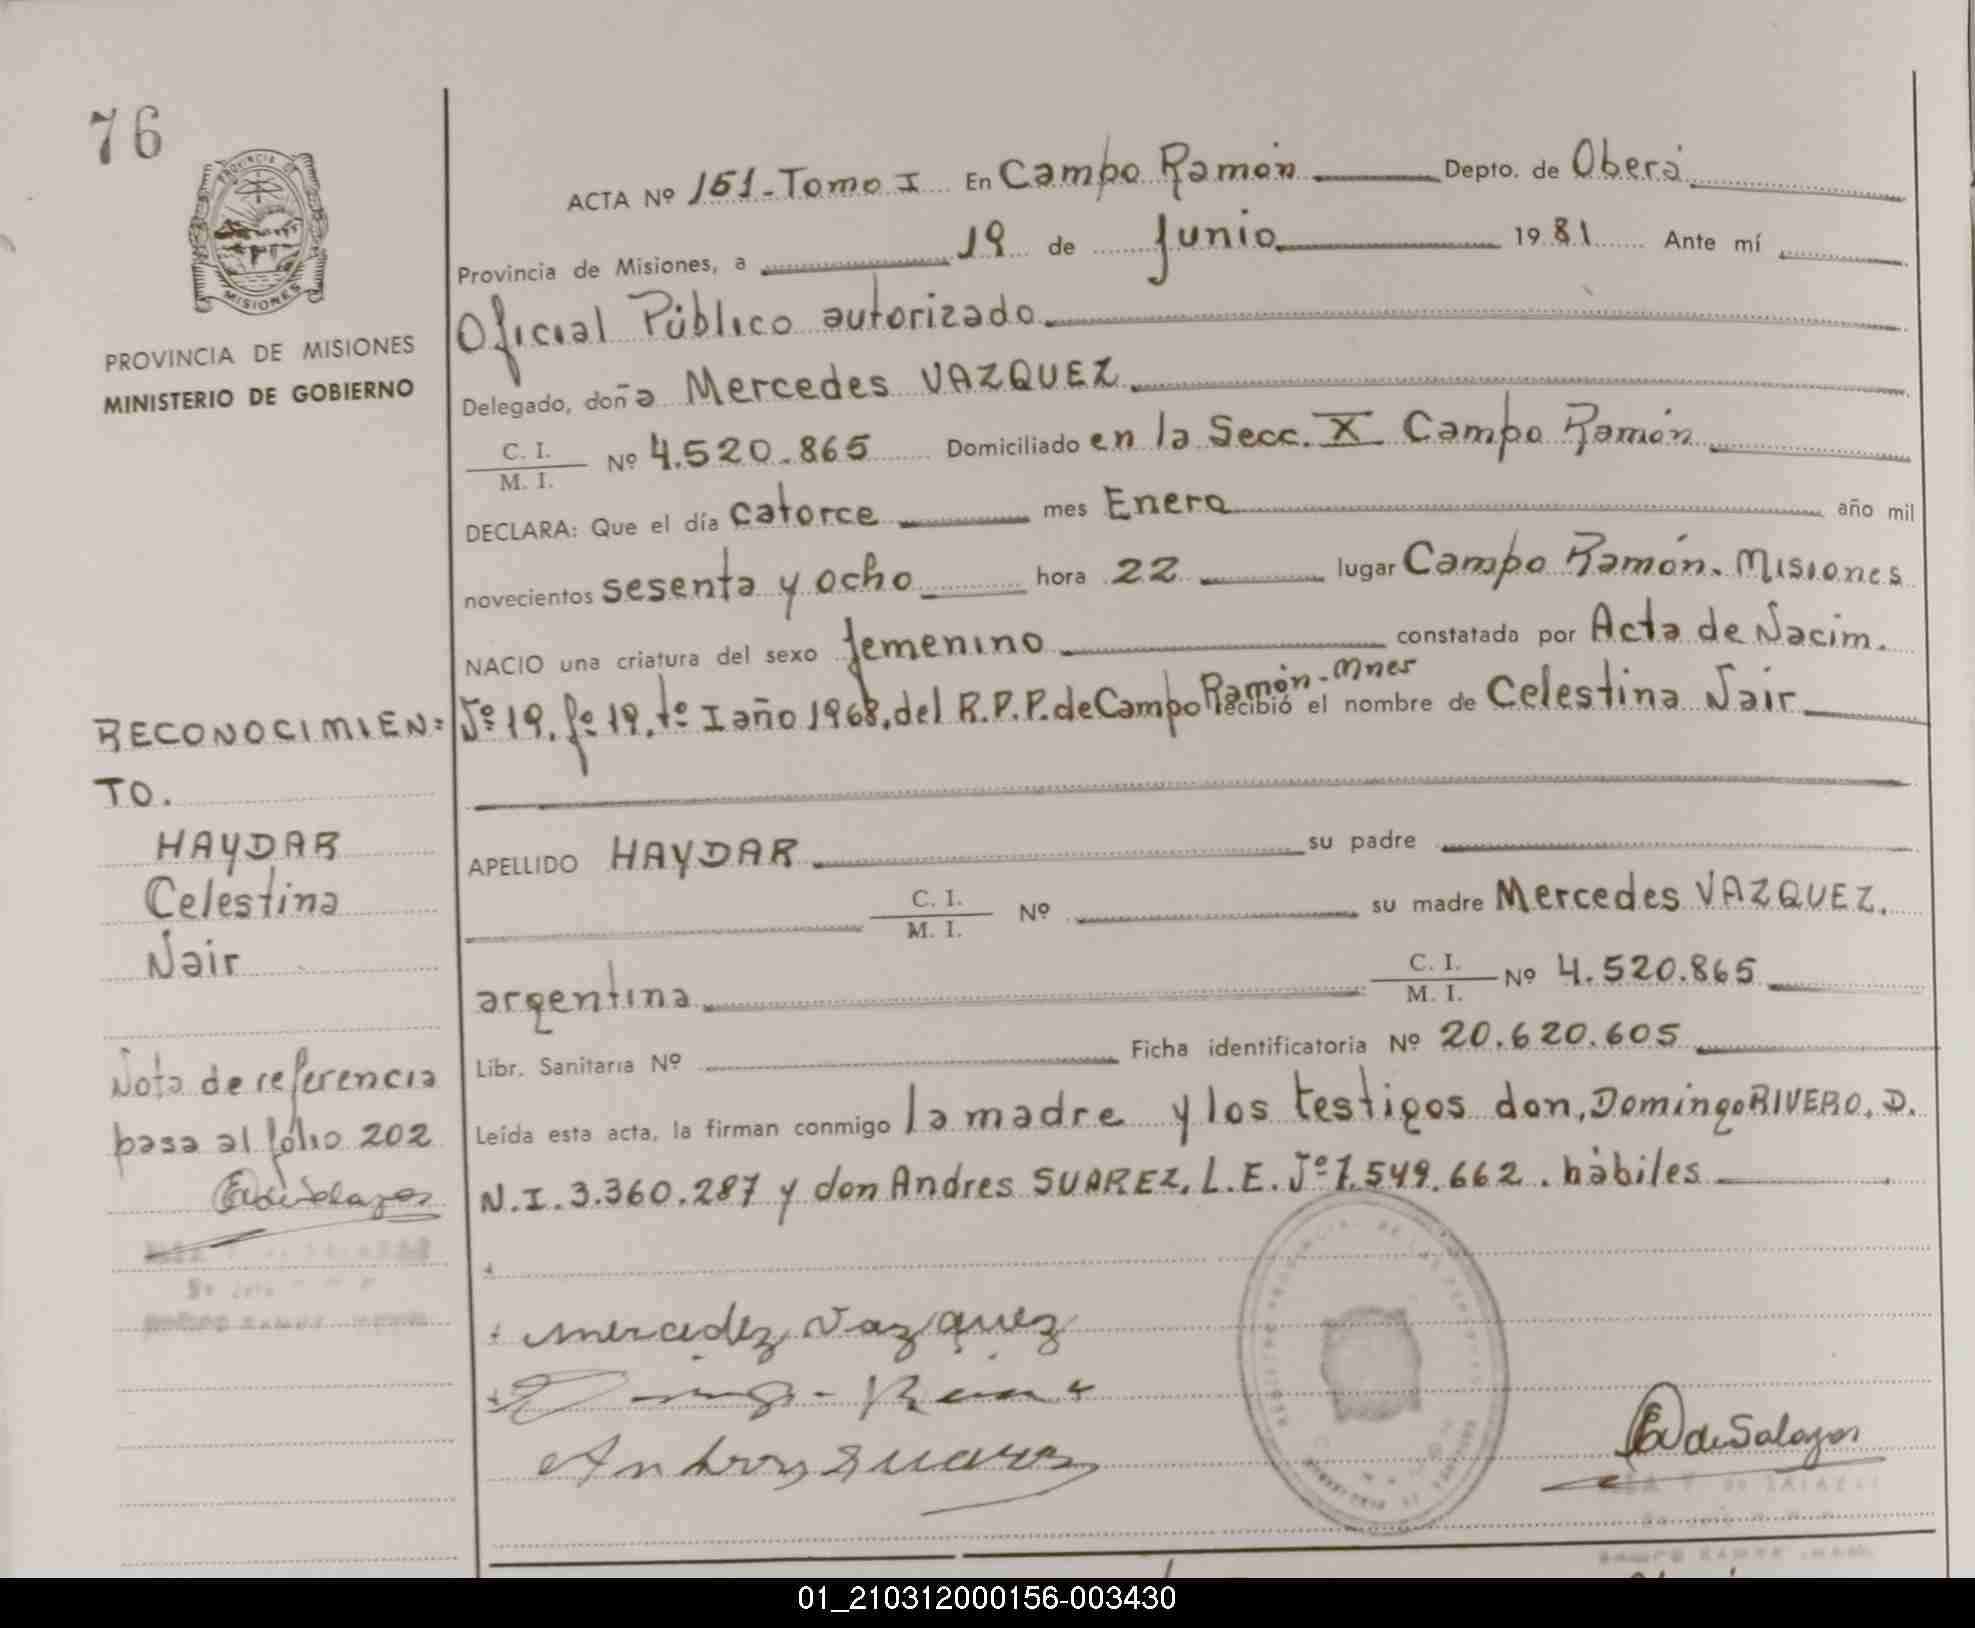 76
PROVINCIA DE MISIONES
PROVINCIA DE MISIONES
MINISTERIO DE GOBIERNO
ACTA Nº 151-Tomo I En Campo Ramón Depto. de Oberá
Provincia de Misiones, a 19 de Junio 1981 Ante mí
Oficial Público autorizado
Delegado, doña Mercedes VAZQUEZ
C. I.
M. I. Nº 4.520.865 Domiciliado en la Secc. X Campo Ramón
DECLARA: Que el día catorce mes Enero año mil
novecientos sesenta y ocho hora 22 lugar Campo Ramón. Misiones
NACIO una criatura del sexo femenino constatada por Acta de Nacim.
Nº 19. fº 19. tº I año 1968. del R.P.P. de Campo Ramón-Mnes recibió el nombre de Celestina Nair
APELLIDO HAYDAR su padre
C. I.
M. I. Nº su madre Mercedes VAZQUEZ.
argentina C. I.
M. I. Nº 4.520.865
Libr. Sanitaria Nº Ficha identificatoria Nº 20.620.605
Leída esta acta, la firman conmigo la madre y los testigos don, Domingo RIVERO. D.
N.I. 3.360.287 y don Andres SUAREZ. L.E. Nº 7.549.662. hábiles
RECONOCIMIEN=
TO.
HAYDAR
Celestina
Nair
Nota de referencia
pasa al fólio 202
EVdeSalazar
mercedez Vazquez
Andres Suarez
EVdeSalazar
01_210312000156-003430